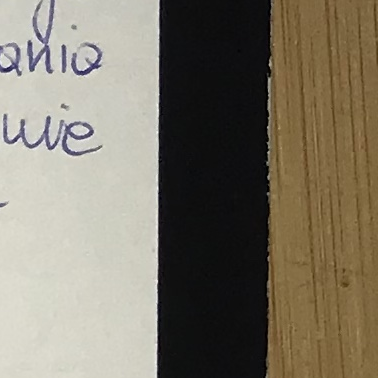 ania
wie